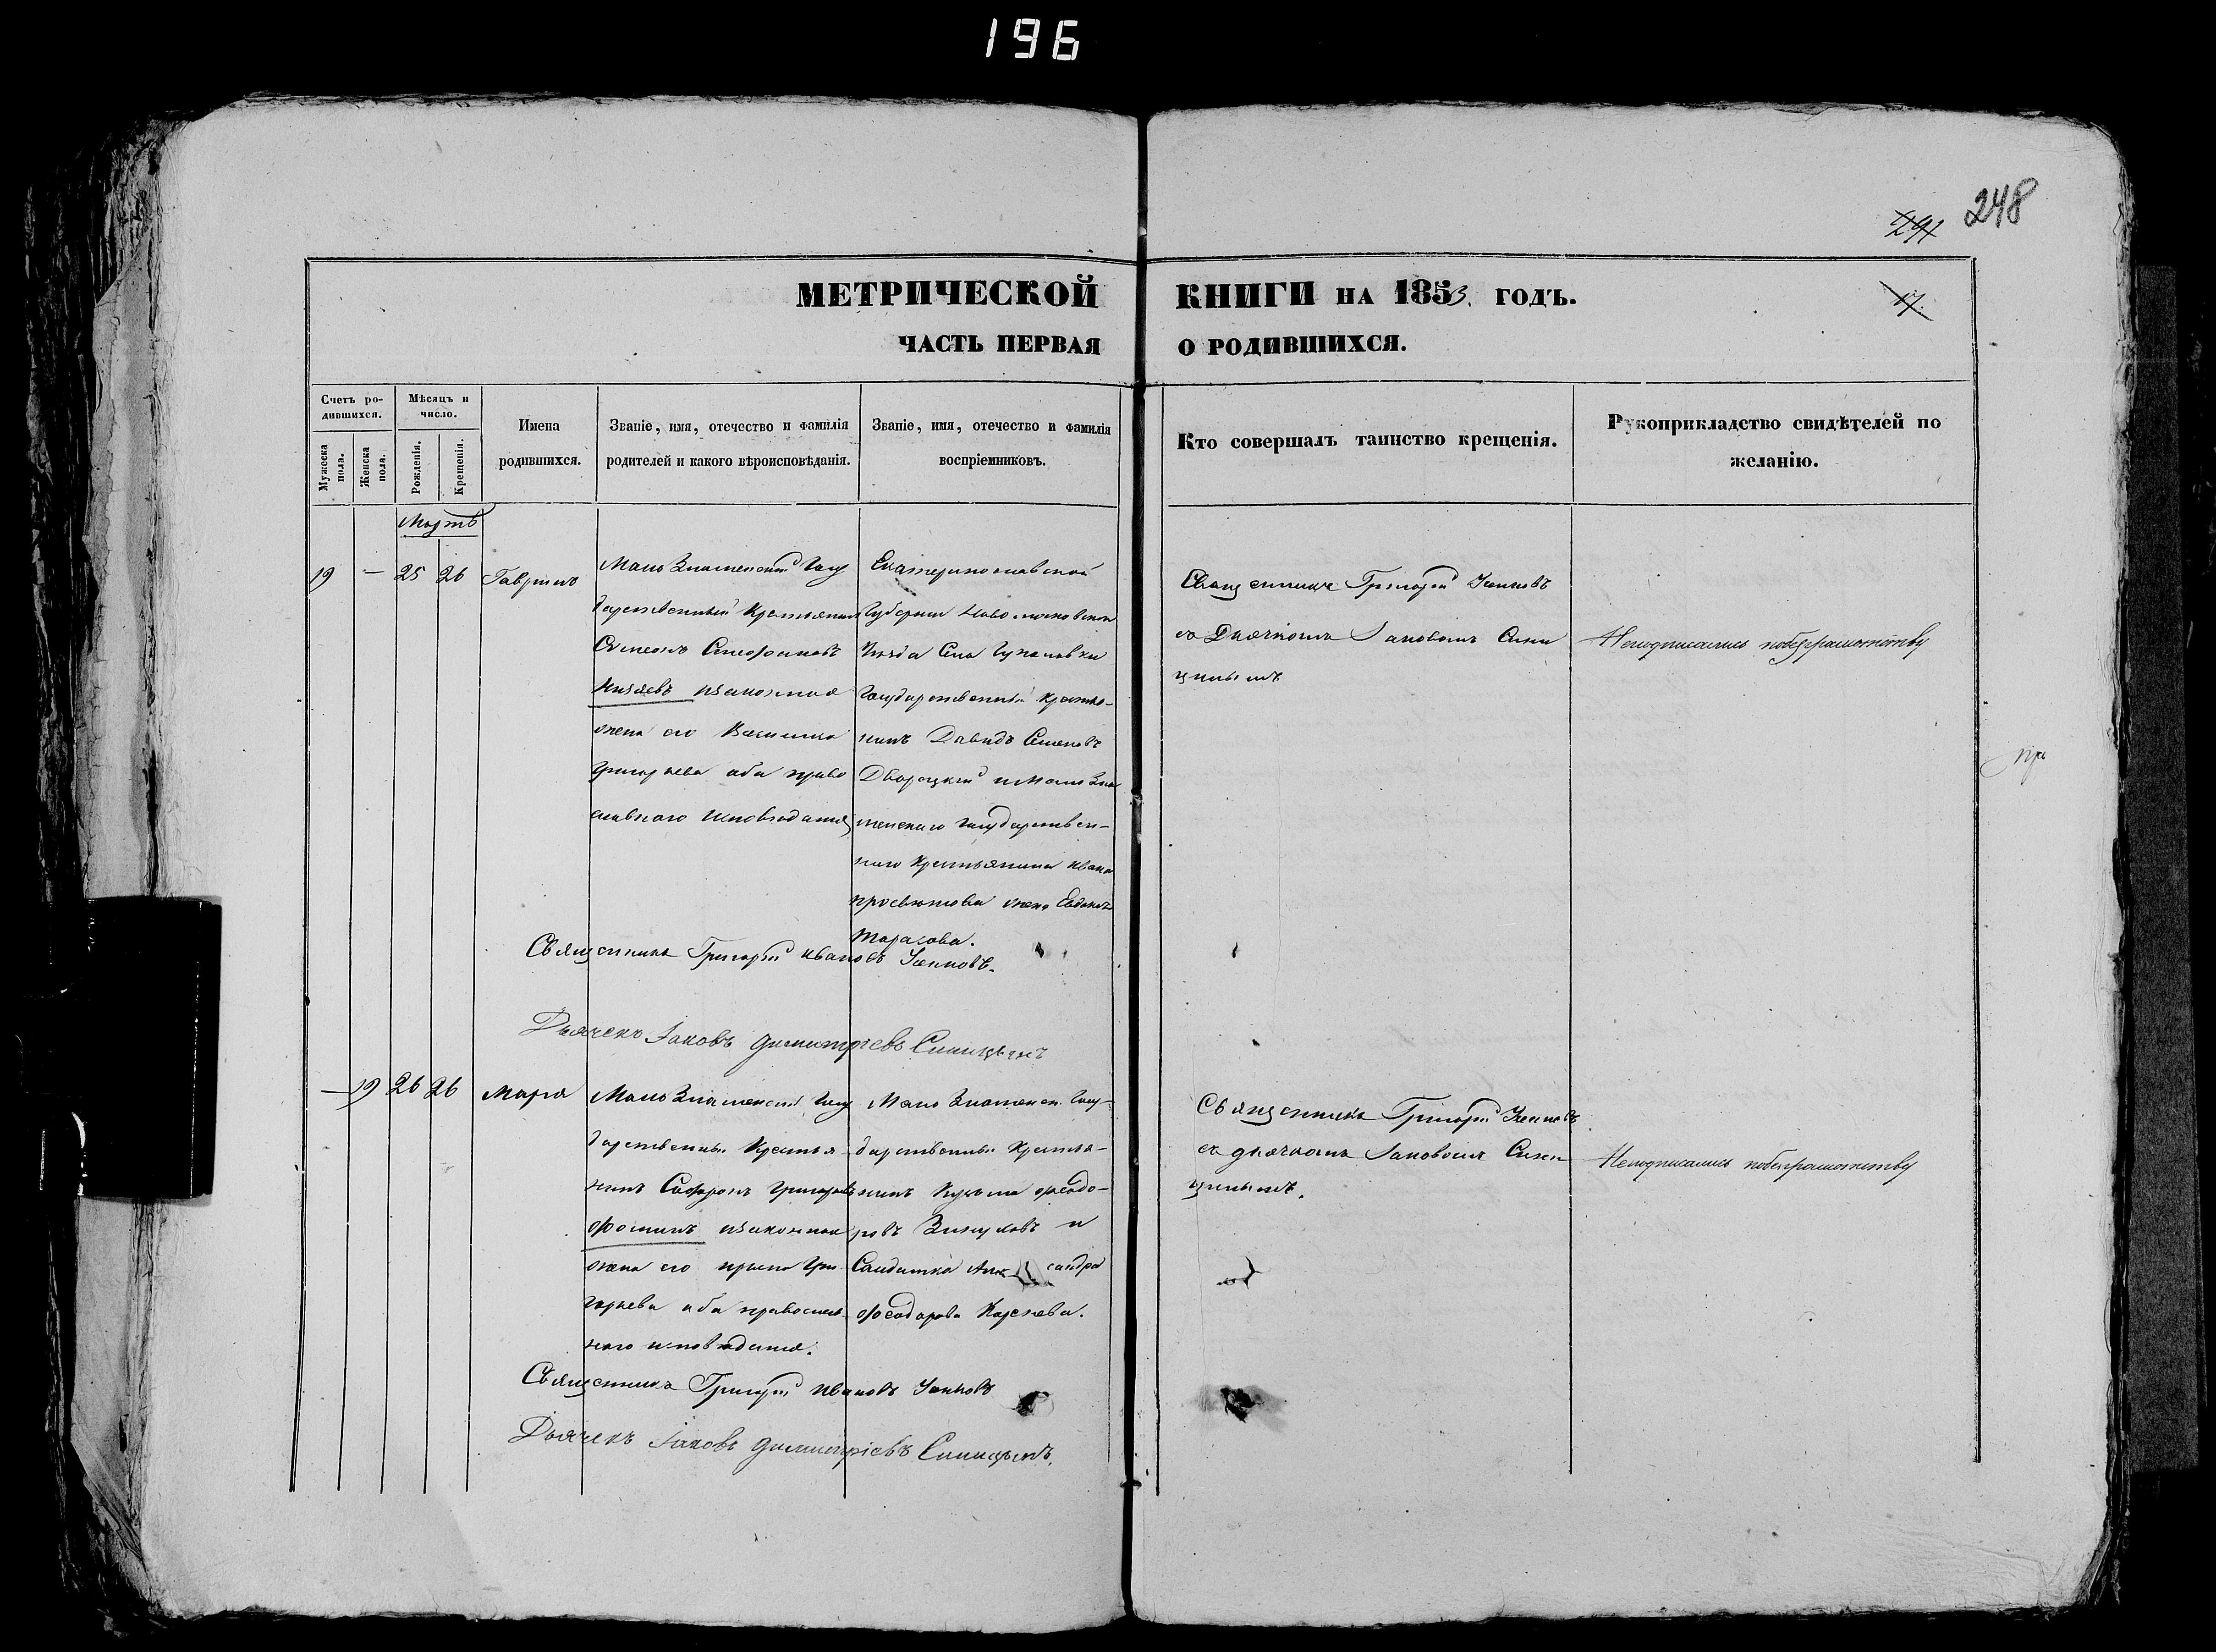 196
248
291
МЕТРИЧЕСКОЙ КНИГИ НА 1853. ГОДЪ.
17.
ЧАСТЬ ПЕРВАЯ О РОДИВШИХСЯ.
Счетъ родившихся.
Мужеска пола.
Женска пола.
Мѣсяцъ и число.
Рожденія.
Крещенія.
Имена родившихся.
Званіе, имя, отечество и фамилія родителей и какого вѣроисповѣданія.
Званіе, имя, отечество и фамилія воспріемниковъ.
Кто совершалъ таинство крещенія.
Рукоприкладство свидѣтелей по желанію.
Мартъ
19 — 25 26 Гавріилъ
Мало Знаменскій Госу
дарственный Крестьянинъ
Сѵмеонъ Стефановъ
Князевъ изаконная
жена его Василиса
Григорьева оба право
славнаго исповѣданія
Екатеринославской
Губерніи Новомосковскаго
Уѣзда Села Гупаловки
Государственный Крестья-
нинъ Давидъ Семеновъ
Дворецкій и Мало Зна
менскаго Государствен-
наго Крестьянина Ивана
жена Евдокія
Тарасова.
Священникъ Григорій
съ Дьячкомъ Іаковомъ Сини
цинымъ
Неподписались побезграмотству
Священникъ Григорій Ивановъ
Дьячекъ Іаковъ Димитріевъ Синицынъ
— 19 26 26 Марія
Мало Знаменскій Госу
дарственный Крестья
нинъ Софронъ Григорьевъ
Фоминъ изаконная
жена его Ирина Гри
горьева оба православ
наго исповѣданія.
Мало Знаменск. Госу-
дарственный Крестья-
нинъ Кузьма Феодо-
ровъ и
Солдатка Александра
Феодорова Корнева.
Священникъ Григорій
съ дьячкомъ Іаковомъ Сини
цинымъ.
Неподписались побезграмотству
Священникъ Григорій Ивановъ
Дьячекъ Іаковъ Димитріевъ Синицынъ.